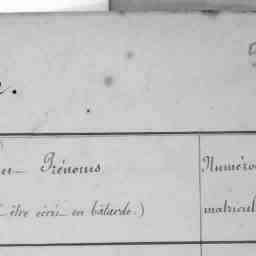 Prénoms
être écrit en bâtarde.)
Numéro
matricul